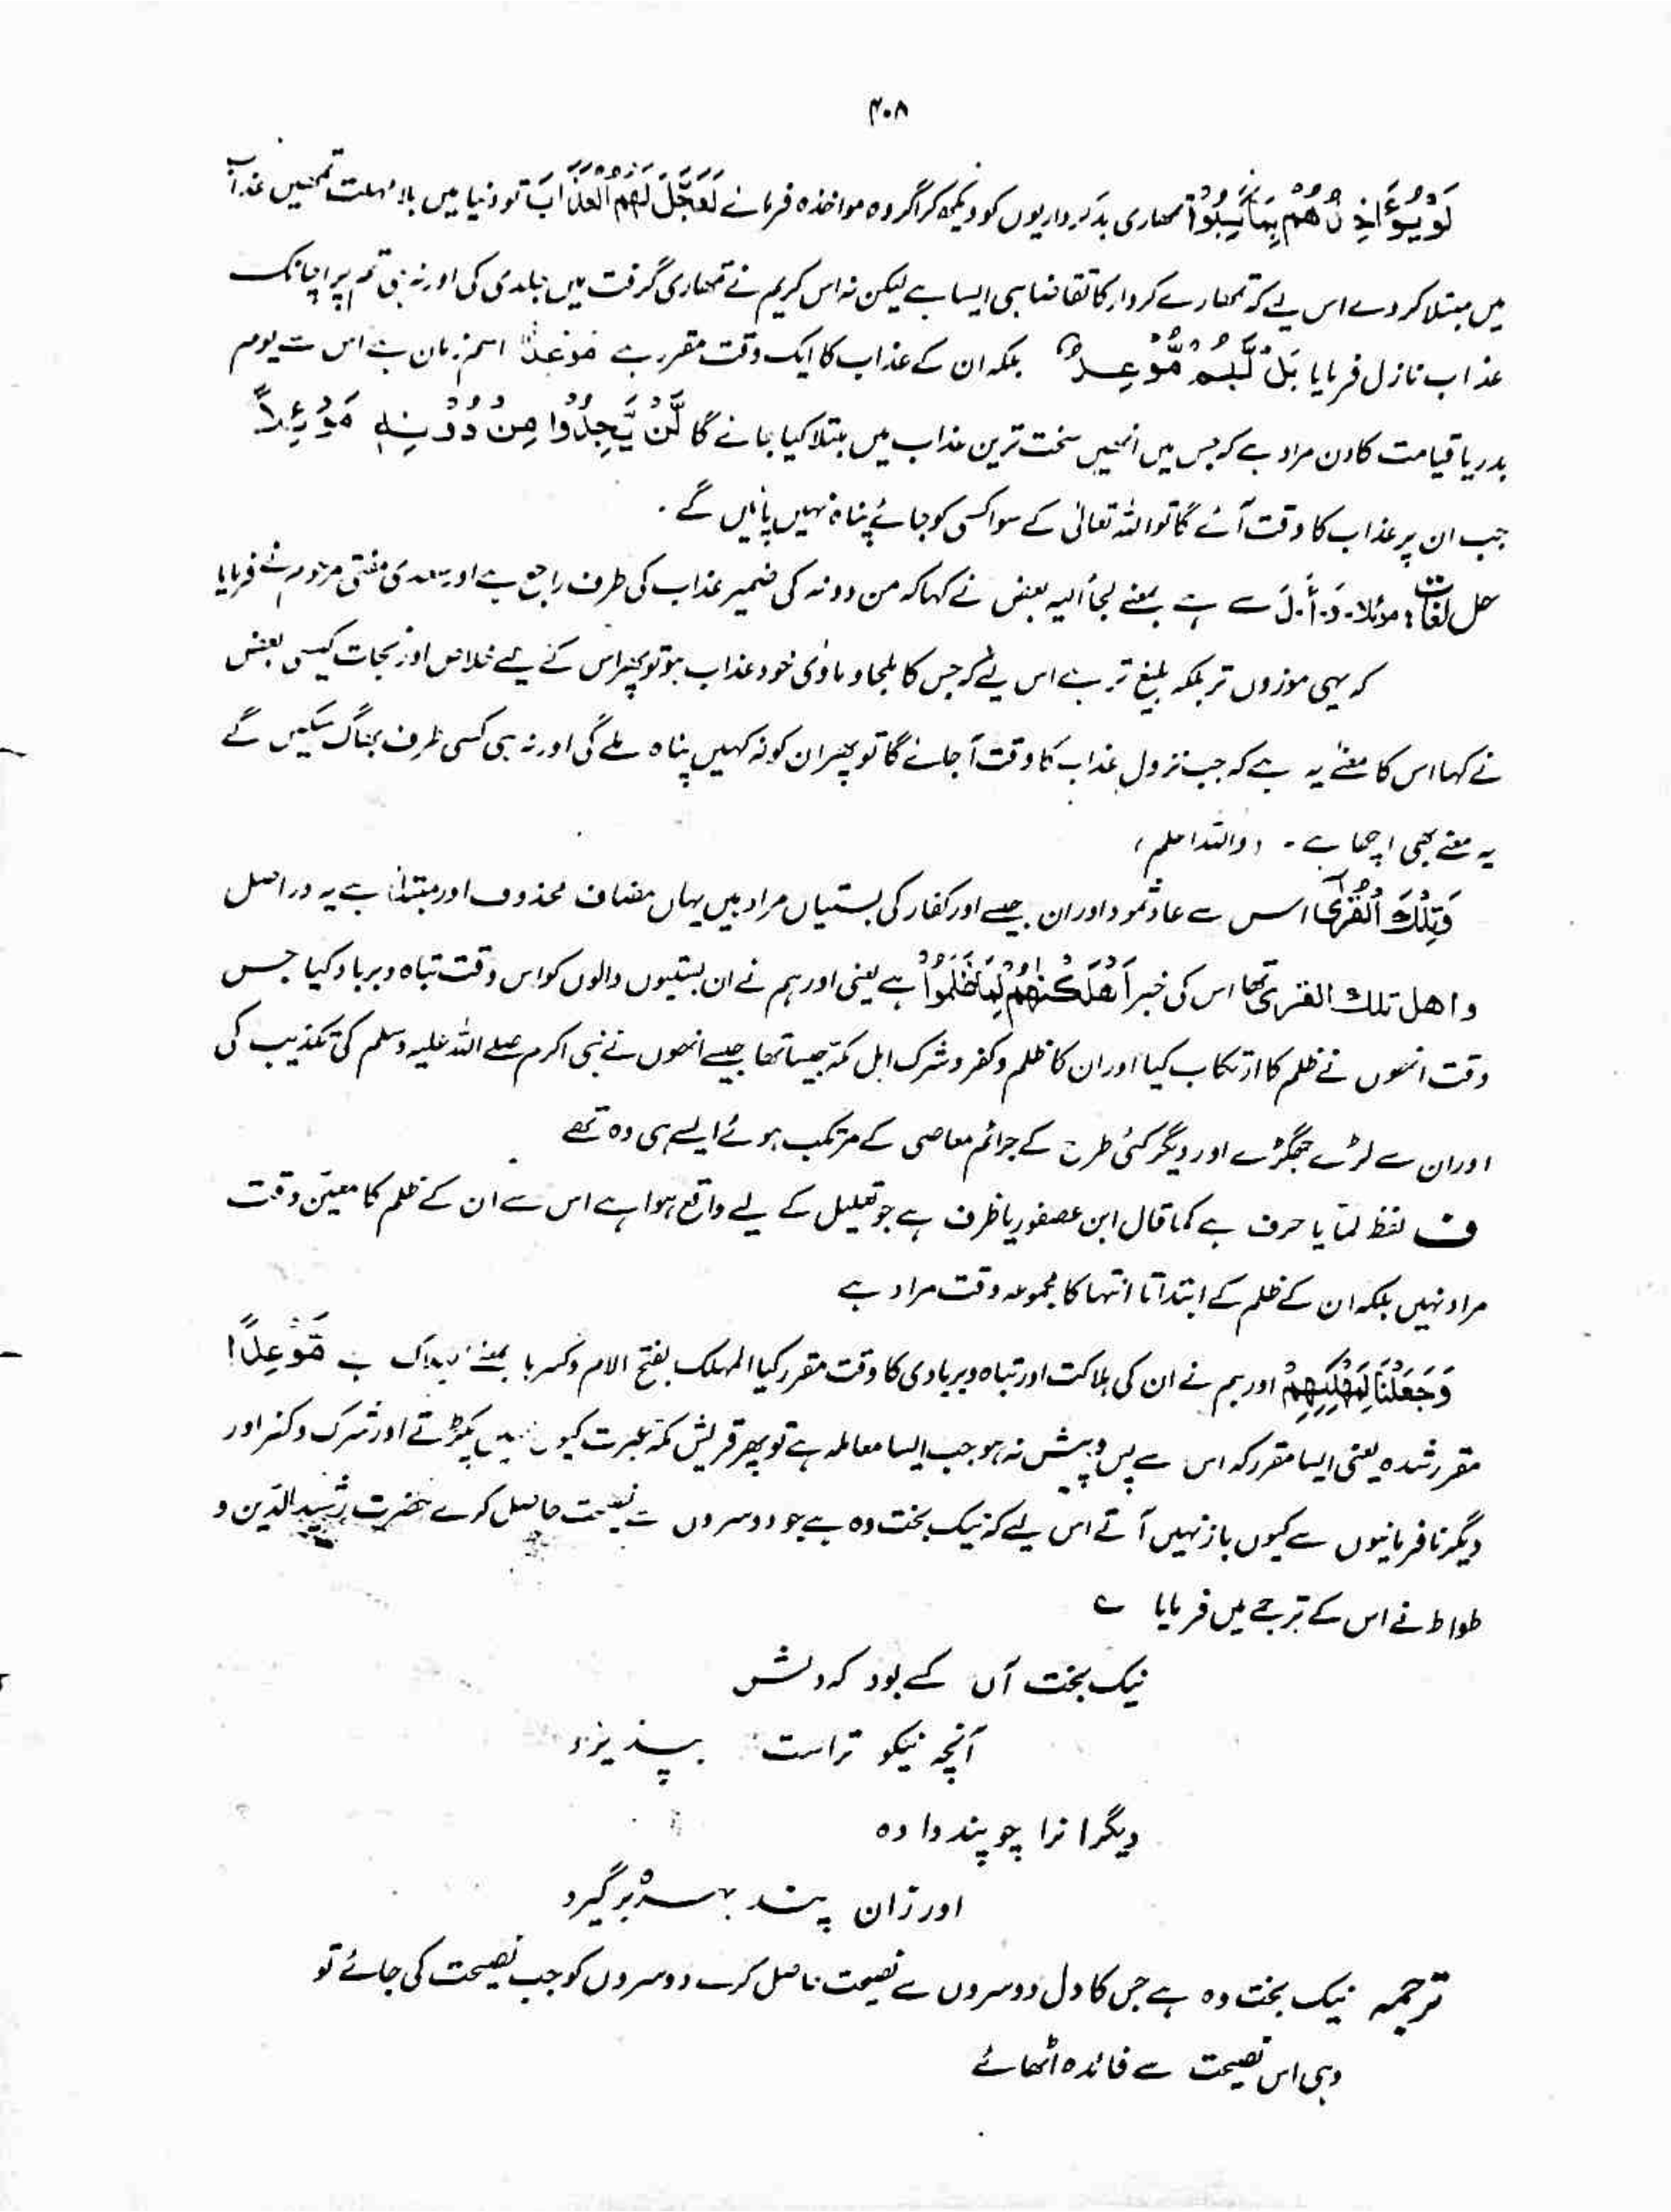 ۴۰۸
لَوْ يُؤَاخِذُهُمْ بِمَا كَسَبُوْا تمھاری بدکرداریوں کو دیکھ کر اگر وہ مواخذہ فرمائے لَعَجَّلَ لَهُمُ الْعَذَابَ تو دنیا میں بلا مہلت تمھیں عذاب
میں مبتلا کر دے اس لیے کہ تمھارے کردار کا تقاضا ہی ایسا ہے لیکن نہ اس کریم نے تمھاری گرفت میں جلدی کی اور نہ ہی تم پر اچانک
عذاب نازل فرمایا بَلْ لَّهُمْ مَّوْعِدٌ بلکہ ان کے عذاب کا ایک وقت مقرر ہے مَوْعِدٌ اسم زمان ہے اس سے یوم
بدر یا قیامت کا دن مراد ہے کہ جس میں انھیں سخت ترین عذاب میں مبتلا کیا جائے گا لَّنْ يَّجِدُوْا مِنْ دُوْنِهٖ مَوْئِلًا
جب ان پر عذاب کا وقت آئے گا تو اللہ تعالیٰ کے سوا کسی کو جائے پناہ نہیں پائیں گے ۔
حل لغات : موئلا۔ وَ۔أَ۔لَ سے ہے بمعنے لجأ الیہ بعض نے کہا کہ من دونہ کی ضمیر عذاب کی طرف راجع ہے اور سعدی مفتی مرحوم نے فرمایا
کہ یہی موزوں تر بلکہ بلیغ تر ہے اس لیے کہ جس کا ملجا و ماویٰ خود عذاب ہو تو پھر اس کے لیے خلاص اور نجات کیسی بعض
نے کہا اس کا معنے یہ ہے کہ جب نزول عذاب کا وقت آ جائے گا تو پھر ان کو نہ کہیں پناہ ملے گی اور نہ ہی کسی طرف بھاگ سکیں گے
یہ معنے بھی اچھا ہے ۔ (واللہ اعلم)
وَتِلْكَ الْقُرٰى اس سے عاد ثمود اور ان جیسے اور کفار کی بستیاں مراد ہیں یہاں مضاف محذوف اور مبتدا ہے یہ دراصل
و اهل تلك القرىٰ تھا اس کی خبر اَهْلَكْنٰهُمْ لَمَّا ظَلَمُوْا ہے یعنی اور ہم نے ان بستیوں والوں کو اس وقت تباہ و برباد کیا جس
وقت انھوں نے ظلم کا ارتکاب کیا اور ان کا ظلم و کفر و شرک اہل مکہ جیسا تھا جیسے انھوں نے نبی اکرم صلے اللہ علیہ وسلم کی تکذیب کی
اور ان سے لڑے جھگڑے اور دیگر کئی طرح کے جرائم معاصی کے مرتکب ہوئے ایسے ہی وہ تھے
ف لفظ لمّا یا حرف ہے کما قال ابن عصفور یا ظرف ہے جو تعلیل کے لیے واقع ہوا ہے اس سے ان کے ظلم کا معیّن وقت
مراد نہیں بلکہ ان کے ظلم کے ابتدا تا انتہا کا مجموعہ وقت مراد ہے
وَجَعَلْنَا لِمَهْلِكِهِمْ اور ہم نے ان کی ہلاکت اور تباہ و بربادی کا وقت مقرر کیا المہلک بفتح الام وکسرہا بمعنے ہلاک ہے مَّوْعِدًا
مقرر شدہ یعنی ایسا مقرر کہ اس سے پس و پیش نہ ہو جب ایسا معاملہ ہے تو پھر قریش مکہ عبرت کیوں نہیں پکڑتے اور شرک و کفر اور
دیگر نافرمانیوں سے کیوں باز نہیں آتے اس لیے کہ نیک بخت وہ ہے جو دوسروں سے نصیحت حاصل کرے حضرت رشید الدین و
طواط نے اس کے ترجمے میں فرمایا ے
نیک بخت آں کسے بود کہ دلش
آنچہ نیکو تراست بپذیرد
دیگرانرا چو پند دادہ
اورزان پند بہرہ برگیرد
ترجمہ نیک بخت وہ ہے جس کا دل دوسروں سے نصیحت حاصل کرے دوسروں کو جب نصیحت کی جائے تو
وہی اس نصیحت سے فائدہ اٹھائے